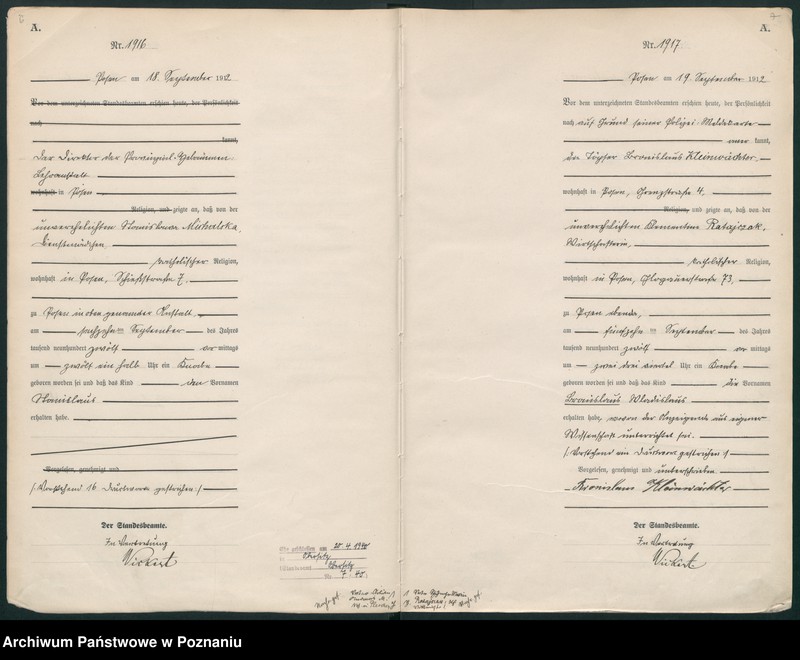 A.
Nr. 1916
Posen am 18. September 1912
Vor dem unterzeichneten Standesbeamten erschien heute, der Persönlichkeit
nach
kannt,
Der Direktor der Provinzial-Hebammen-
Lehranstalt
wohnhaft in Posen
Religion, und zeigte an, daß von der
unverehelichten Stanislawa Michalska,
Dienstmädchen
katholischer Religion,
wohnhaft in Posen, Schießstraße 7.
zu Posen in oben genannter Anstalt
am sechzehn ten September des Jahres
tausend neunhundert zwölf vor mittags
um zwölf ein halb Uhr ein Knabe
geboren worden sei und daß das Kind den Vornamen
Stanislaus
erhalten habe.
Vorgelesen, genehmigt und
/: Vorstehend 16 Druckworte gestrichen :/
Der Standesbeamte.
In Vertretung
Wickert
Eheschließung am 20.4.1940
Nr. 7.40
A.
Nr. 1917
Posen am 19. September 1912
Vor dem unterzeichneten Standesbeamten erschien heute, der Persönlichkeit
nach auf Grund seiner Polizei-Meldekarte
aner kannt,
der Töpfer Bronislaus Kleinwächter,
wohnhaft in Posen, Grenzstraße 4.
Religion, und zeigte an, daß von der
unverehelichten Klementine Ratajczak,
Wirtschafterin,
katholischer Religion,
wohnhaft in Posen, Glogauerstraße 73,
zu Posen ebenda,
am fünfzehn ten September des Jahres
tausend neunhundert zwölf vor mittags
um zwei drei viertel Uhr ein Knabe
geboren worden sei und daß das Kind die Vornamen
Bronislaus Wladislaus
erhalten habe, wovon der Anzeigende aus eigener
Wissenschaft unterrichtet sei.
/: Vorstehend ein Druckwort gestrichen :/
Vorgelesen, genehmigt und unterschrieben
Bronislaus Kleinwächter
Der Standesbeamte.
In Vertretung
Wickert
Archiwum Państwowe w Poznaniu